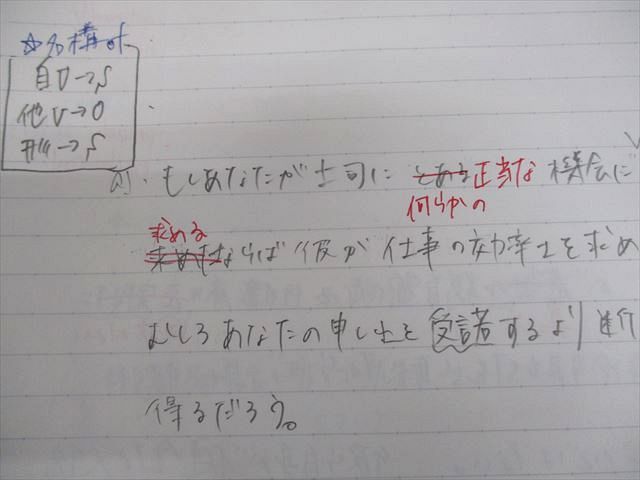 ☆名構 of
自V→S
他V→O
形→S
例. もしあなたが上司に とある 正当な 機会に
何らかの
求める
求めたならば 彼が 仕事の効率上を求め
むしろあなたの申し出を受諾するより
得るだろう。